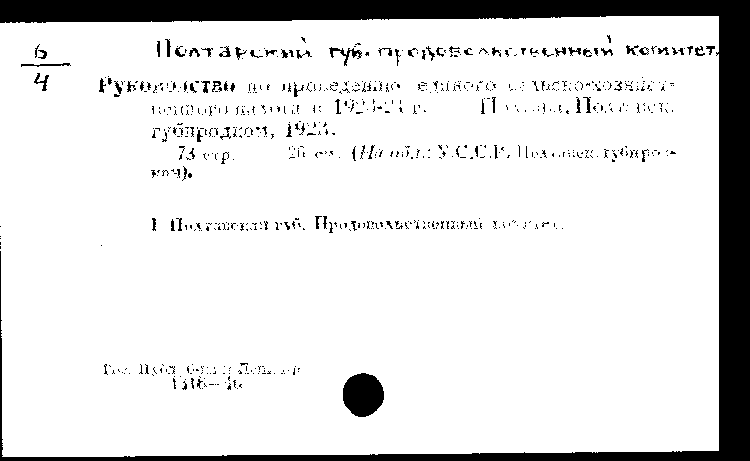 6
4
Полтавский губ. продовольственный комитет.
Руководство по проведению единого сельско-хозяйст-
венного налога в 1923-24 г. Полтава, Полтавск.
губпродком, 1923.
73 стр. 26 см. (На обл.: У.С.С.Р. Полтавск. губпрод-
ком).
1 Полтавская губ. Продовольственный комитет.
Гос. Публ. б-ка Ленингр